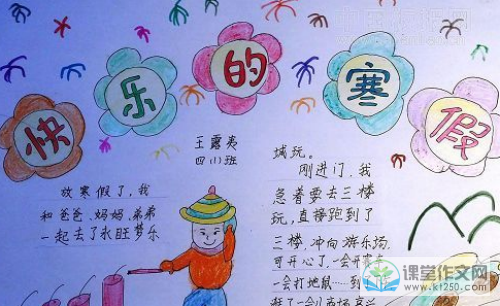 快乐的寒假
王露尧
四(1)班
放寒假了，我
和爸爸、妈妈、弟弟
一起去了永旺梦乐
城玩。
刚进门，我
急着要去三楼
玩，直接跑到了
三楼，冲向游乐场，
可开心了，一会开
一会打地鼠……到
课堂作文网
www.kt250.com